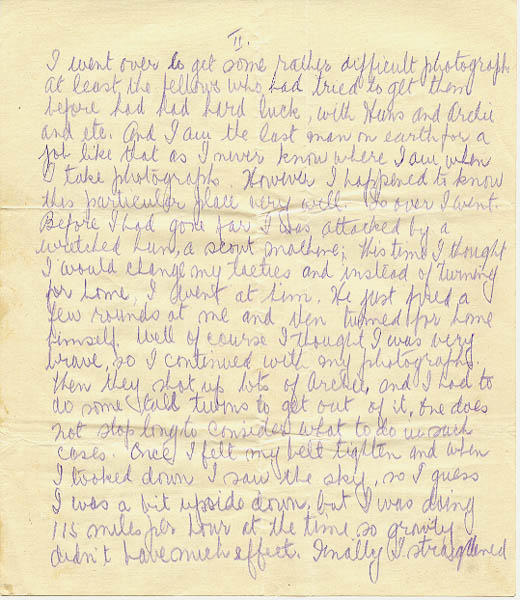 II.
I went over to get some rather difficult photographs
at least, the fellows who had tried to get them
before had had hard luck, with Huns and Archie
and etc. And I am the last man on earth for a
job like that as I never know where I am when
I take photographs. However I happened to know
this particular place very well. So over I went.
Before I had gone far I was attacked by a
wretched Hun, a scout machine; this time I thought
I would change my tactics and instead of turning
for home, I went at him. He just fired a
few rounds at me and then turned for home
himself. Well of course I thought I was very
brave, so I continued with my photographs.
Then they shot up lots of Archie, and I had to
do some tall turns to get out of it, one does
not stop long to consider what to do in such
cases. Once I felt my belt tighten and when
I looked down I saw the sky, so I guess
I was a bit upside down, but I was doing
115 miles per hour at the time so gravity
didn't have much effect. Finally I straightened